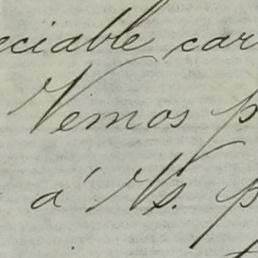 eciable car
Vemos p
á Vs. p